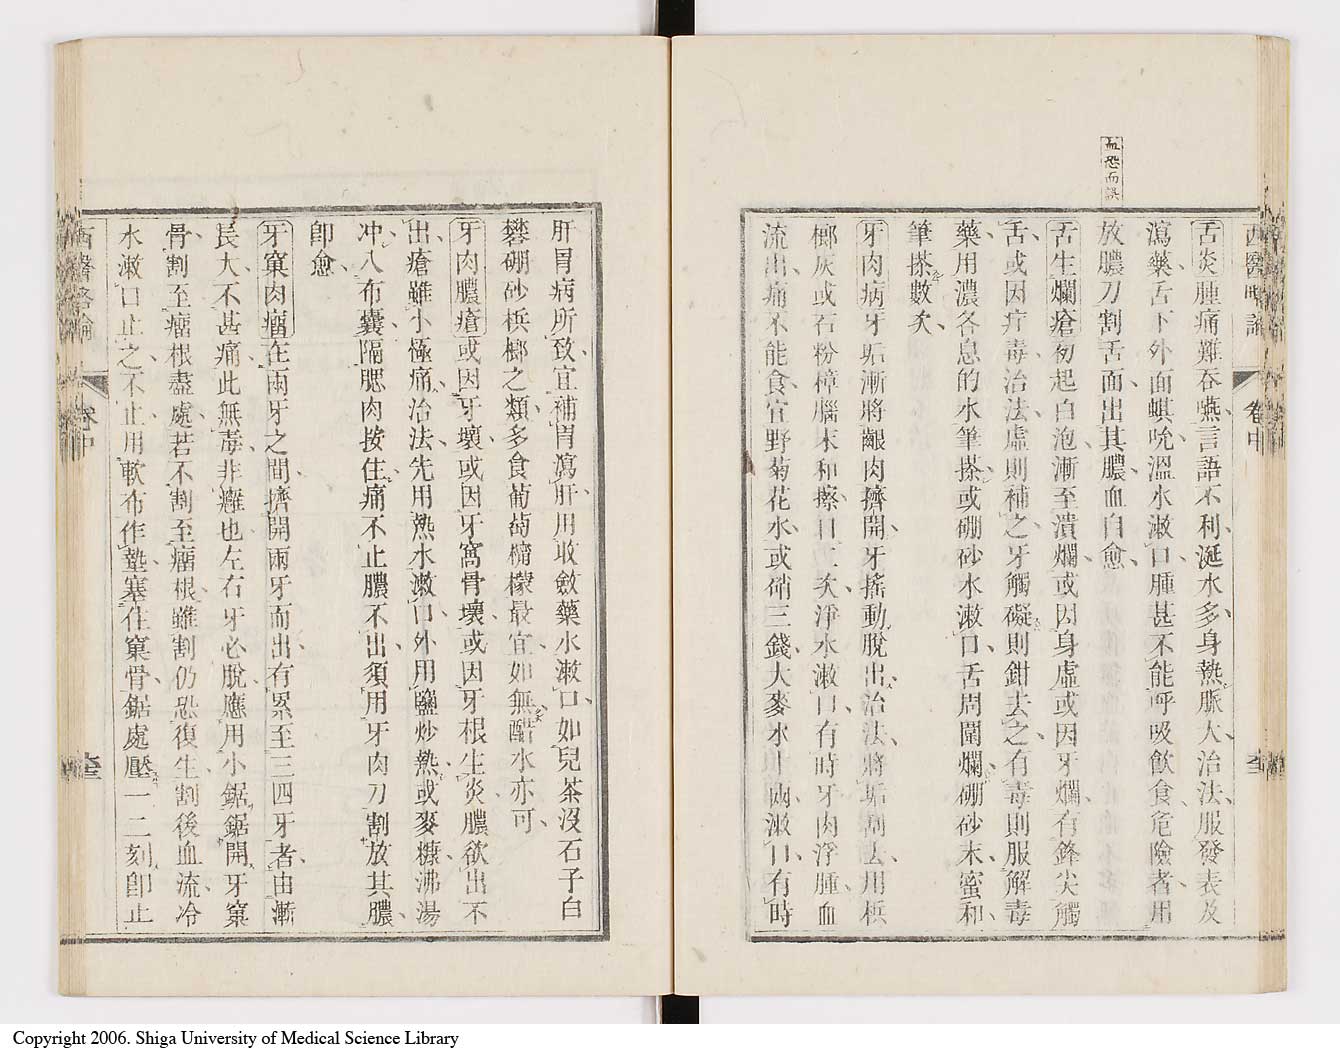 西醫略論
卷中
舌炎腫痛難吞嚥言語不利涎水多身熱脈大治法服發表及
瀉藥舌下外面蜞吮溫水漱口腫甚不能呼吸飲食危險者用
放膿刀割舌面出其膿血自愈
舌生爛瘡初起白泡漸至潰爛或因身虛或因牙爛有鋒尖觸
舌或因疔毒治法虛則補之牙觸礙則鉗去之有毒則服解毒
藥用濃各息的水筆搽或硼砂水漱口舌周圍爛硼砂末蜜和
筆搽數次
牙肉病牙垢漸將齦肉擠開牙搖動脫出治法將垢割去用梹
榔灰或石粉樟腦末和擦日二次淨水漱口有時牙肉浮腫血
流出痛不能食宜野菊花水或硝三錢大麥水十兩漱口有時
肝胃病所致宜補胃瀉肝用收斂藥水漱口如兒茶沒石子白
礬硼砂梹榔之類多食葡萄檸檬最宜如無醋水亦可
牙肉膿瘡或因牙壞或因牙窩骨壞或因牙根生炎膿欲出不
出瘡雖小極痛治法先用熱水漱口外用鹽炒熱或麥糠沸湯
冲入布囊隔腮肉按住痛不止膿不出須用牙肉刀割放其膿
卽愈
牙窠肉瘤在兩牙之間擠開兩牙而出有累至三四牙者由漸
長大不甚痛此無毒非癰也左右牙必脫應用小鋸鋸開牙窠
骨割至瘤根盡處若不割至瘤根雖割仍恐復生割後血流冷
水漱口止之不止用軟布作墊塞住窠骨鋸處壓一二刻卽止
西醫略論
卷中